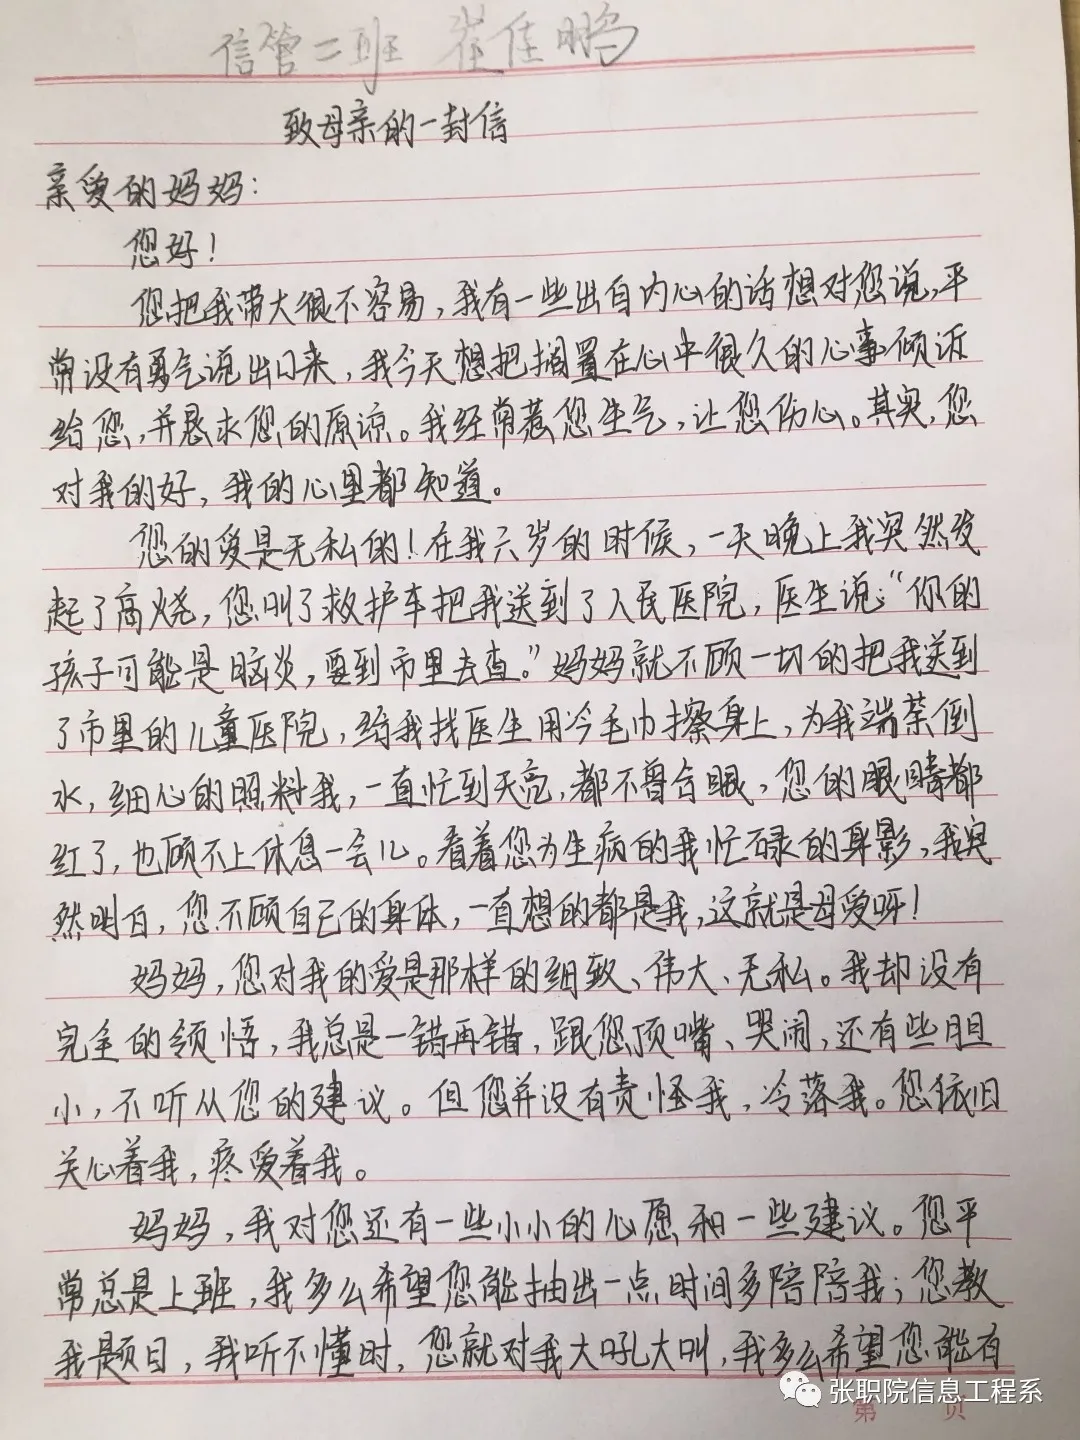 信管二班 崔佳鹏
致母亲的一封信
亲爱的妈妈：
您好！
您把我带大很不容易，我有一些出自内心的话想对您说，平
常没有勇气说出口来，我今天想把搁置在心中很久的心事倾诉
给您，并恳求您的原谅。我经常惹您生气，让您伤心。其实，您
对我的好，我的心里都知道。
您的爱是无私的！在我六岁的时候，一天晚上我突然发
起了高烧，您叫了救护车把我送到了人民医院，医生说：“你的
孩子可能是脑炎，要到市里去查。”妈妈就不顾一切的把我送到
了市里的儿童医院，给我找医生用冷毛巾擦身上，为我端茶倒
水，细心的照料我，一直忙到天亮，都不曾合眼，您的眼睛都
红了，也顾不上休息一会儿。看着您为生病的我忙碌的身影，我突
然明白，您不顾自己的身体，一直想的都是我，这就是母爱呀！
妈妈，您对我的爱是那样的细致、伟大、无私。我却没有
完全的领悟，我总是一错再错，跟您顶嘴、哭闹，还有些胆
小，不听从您的建议。但您并没有责怪我，冷落我。您依旧
关心着我，疼爱着我。
妈妈，我对您还有一些小小的心愿和一些建议。您平
常总是上班，我多么希望您能抽出一点时间多陪陪我；您教
我题目，我听不懂时，您就对我大吼大叫，我多么希望您能有
张职院信息工程系
第 页